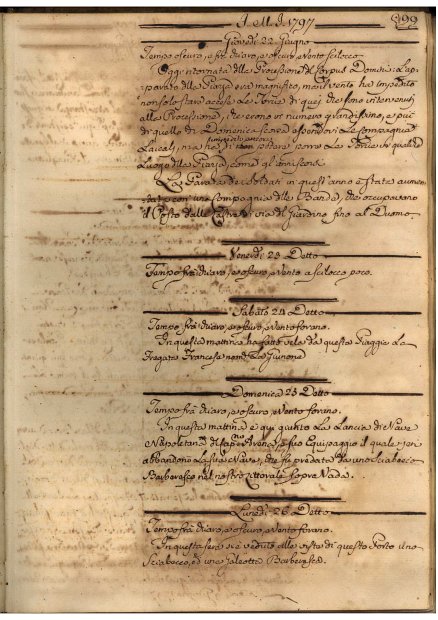 A. M. d. 1797 899
Giovedi 22 Giugno
Tempo oscuro, e frà chiaro, e oscuro, e Vento scilocco
Oggi ritornata della Processione del Corpus Domini: L'ap-
parato della Piazza era magnifico, ma il vento ha impedito
non solo stare accese le Torcie di quei che sono intervenuti
alla Processione, che erano in numero grandissimo, e più
di quello di Domenica scorsa Le Compagnie
Laicali, mà di non potere Le Torcie di quelli
Luogo della Piazza, come gl'anni scorsi
La Parata de Soldati in quest'anno è stata aumen-
tata con una Compagnia delle Bande, che occupavano
il Posto dalla di Giardino fino al Duomo
Venerdi 23 Detto
Tempo frà chiaro, e oscuro, e Vento a scilocco poco.
Sabato 24 Detto
Tempo frà chiaro, e oscuro, e Vento forano.
In questa mattina ha fatto vela da questa Piaggia La
Fregata Francese nom.ta La Giunone
Domenica 25 Detto
Tempo frà chiaro, e oscuro, e Vento forano.
In questa mattina è qui giunta La Lancia di Nave
Napoletana di Cap.no e suo Equipaggio il quale
abbandonò La sua Nave, che fu predata da uno Sciabecco
Barbaresco nel nostro Littorale sopra Vada.
Lunedi 26 Detto
Tempo frà chiaro, e oscuro, e Vento forano.
In questa sera si è veduto alla vista di questo Porto uno
Sciabecco, ed una Galeotta Barbaresca.